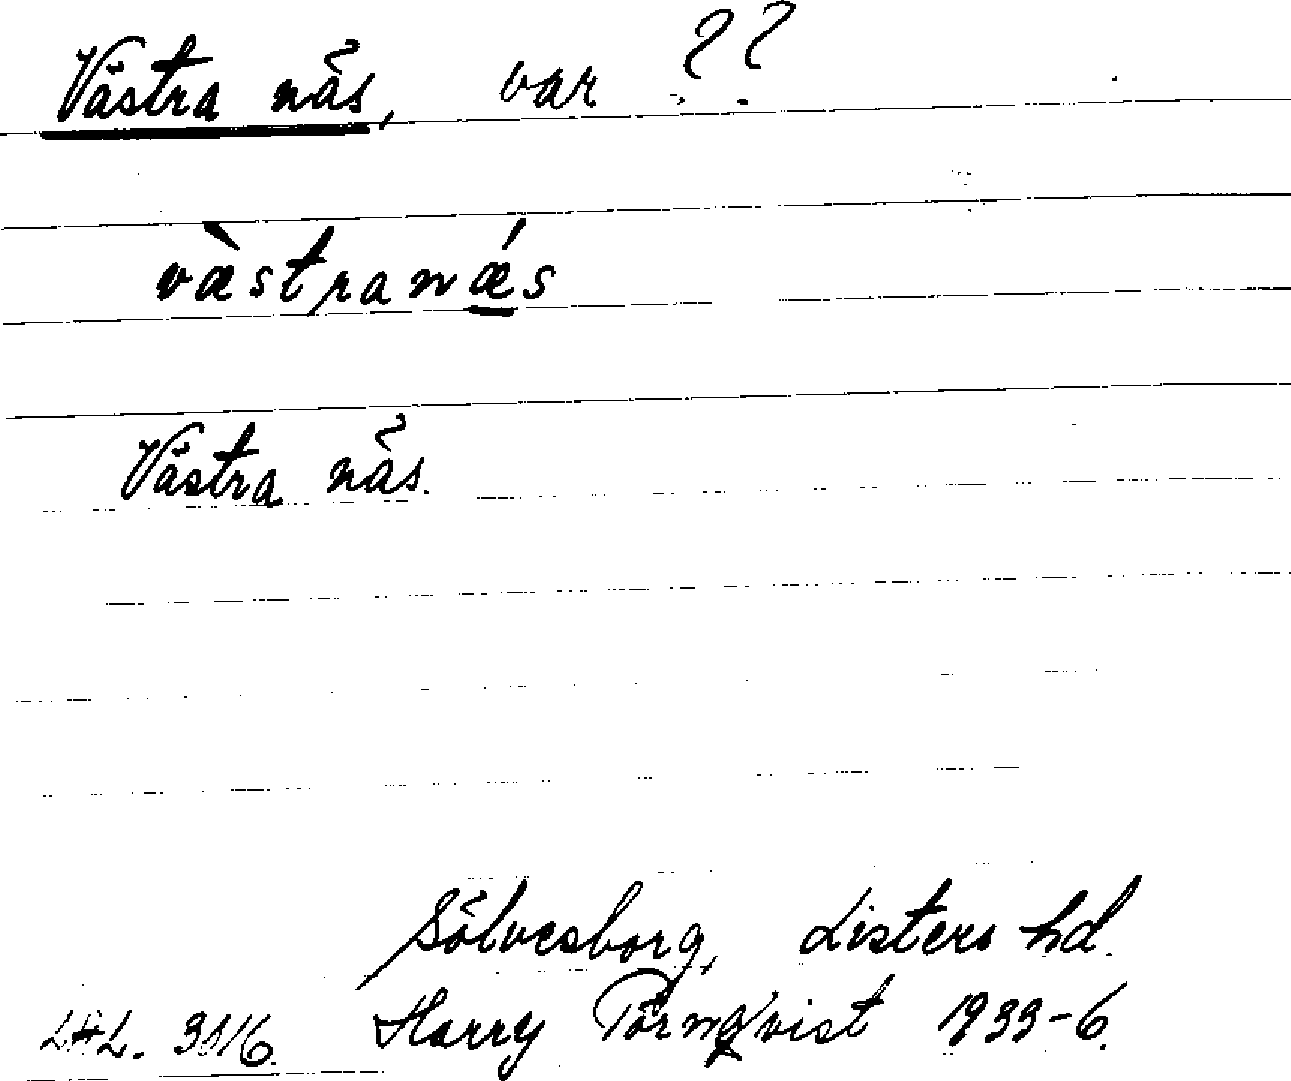 Västra näs, var ??
væ̀stranǽs
Västra näs.
Sölvesborg, Listers hd.
Harry Törnqvist 1933-6.